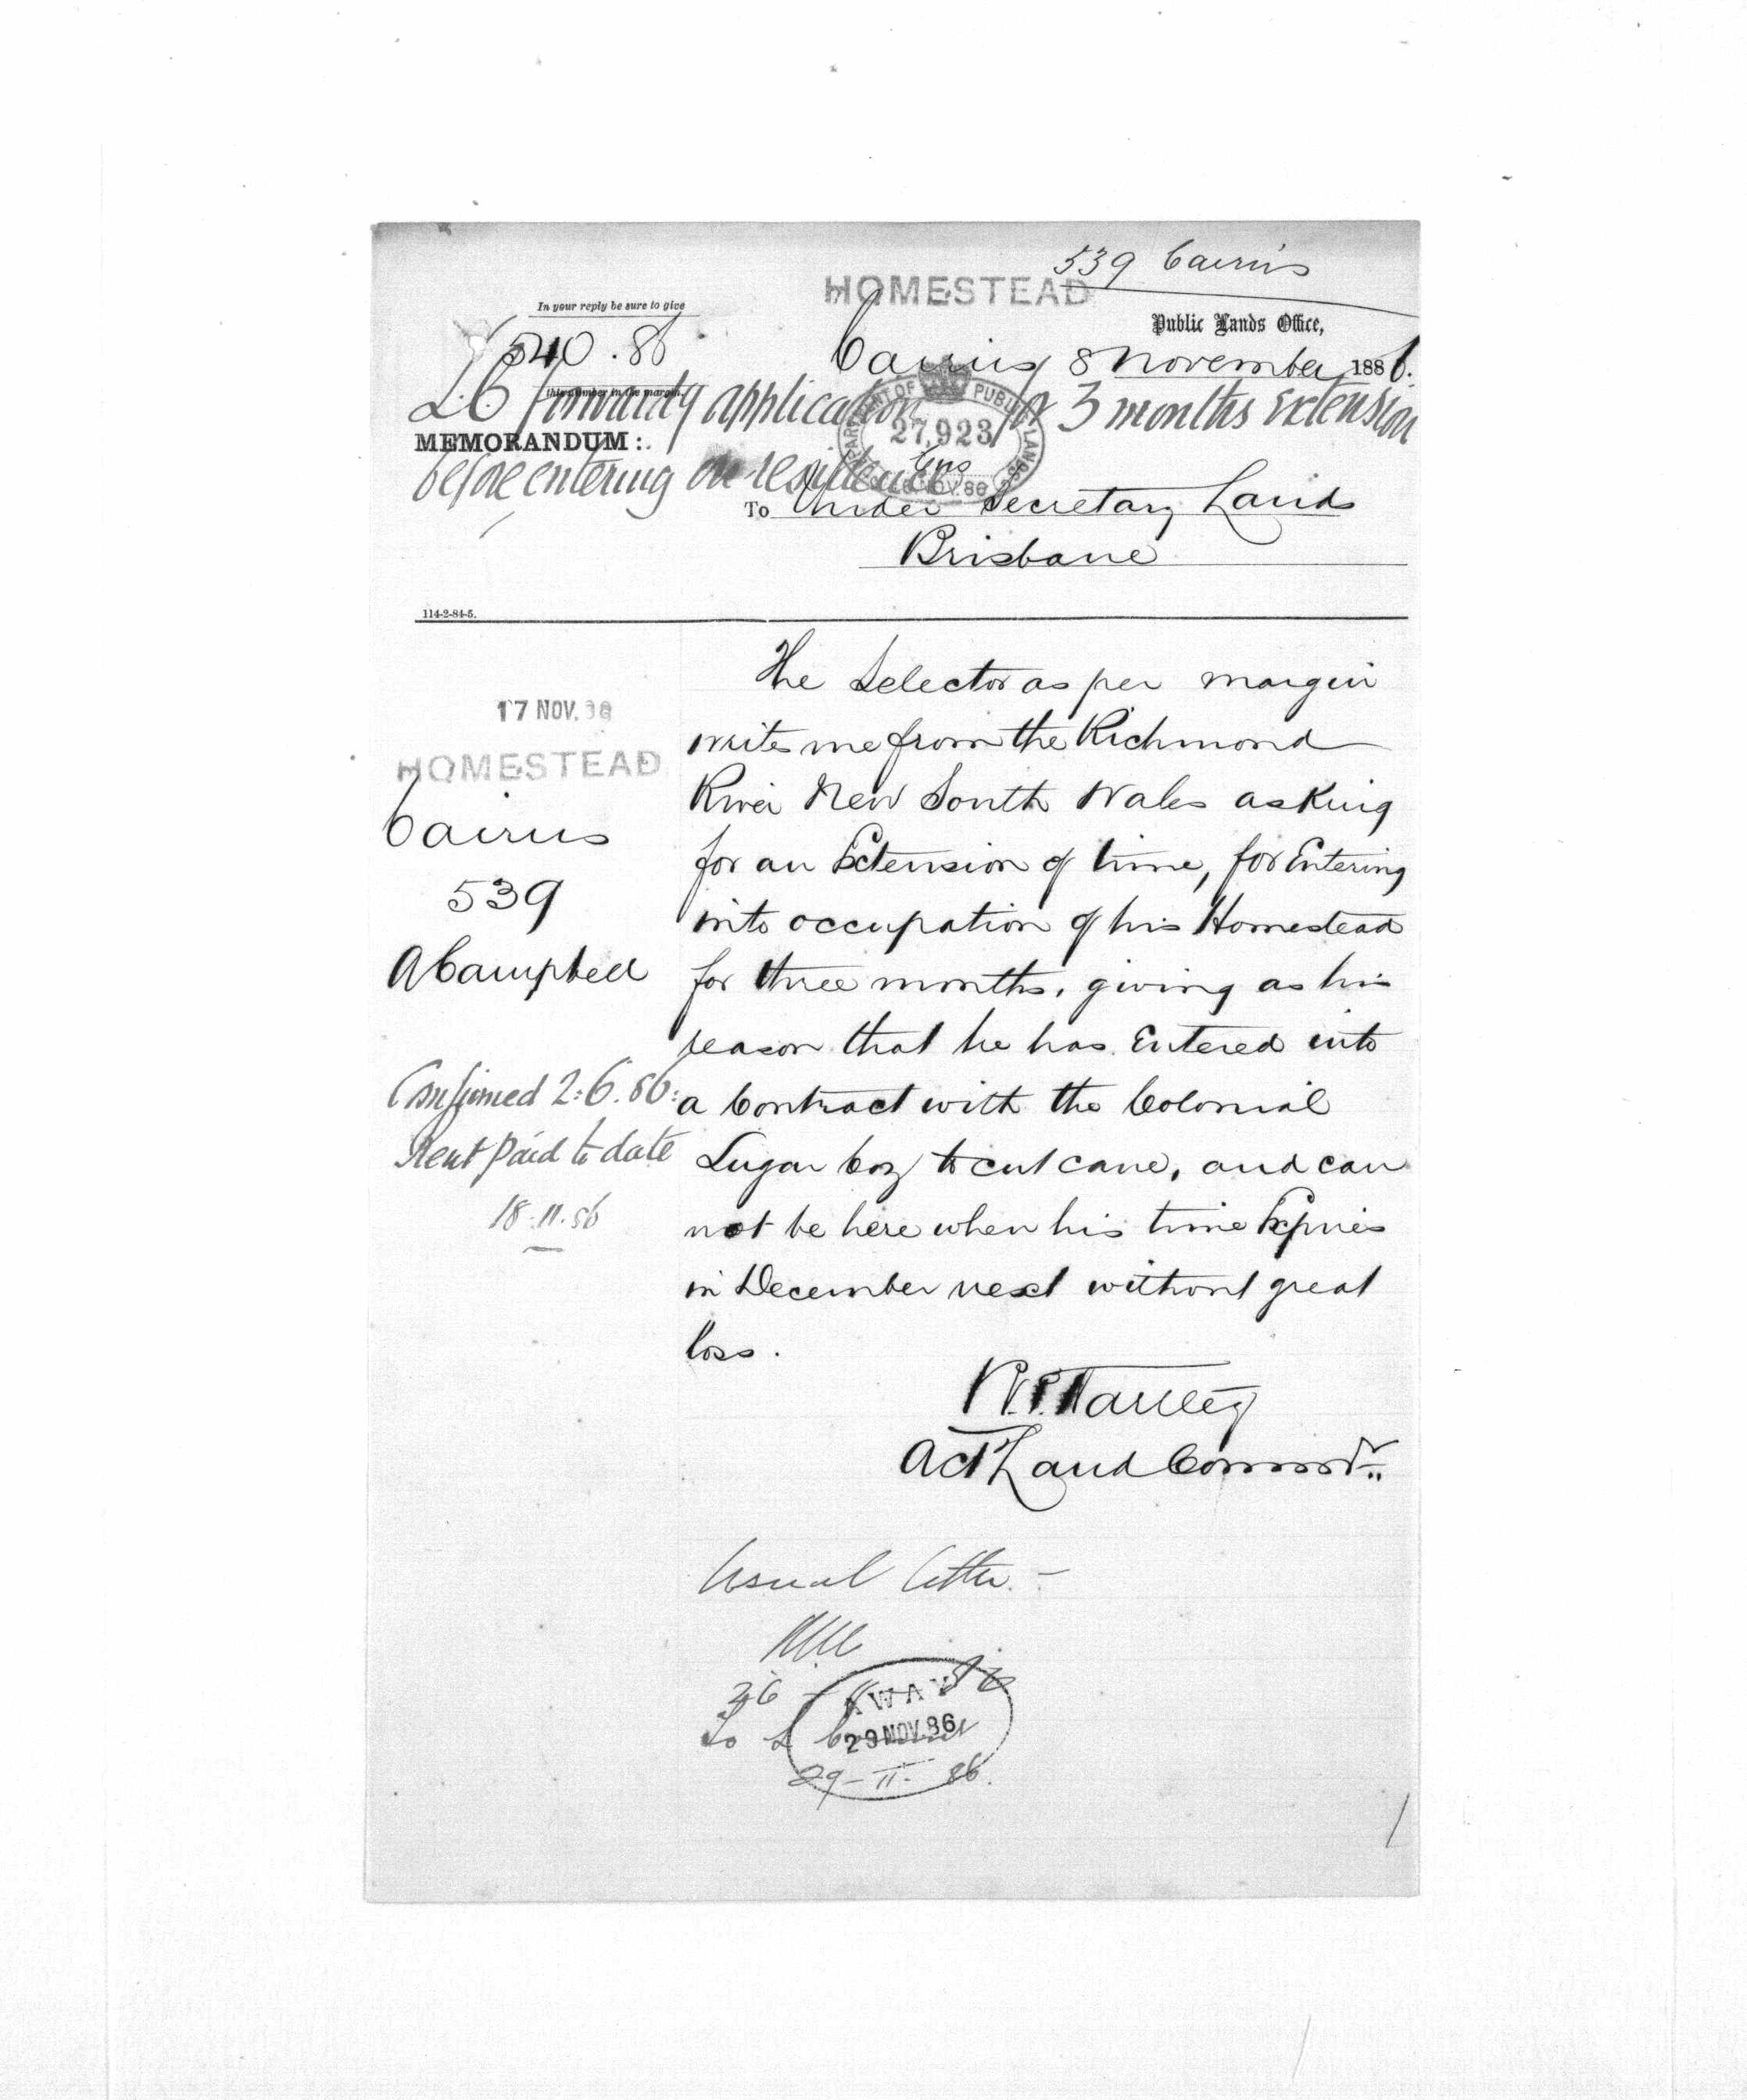 539 Cairns
HOMESTEAD
In your reply be sure to give
540.86
this number in the margin.
Public Lands Office,
Cairns 8 November 1886.
LC forwards application for 3 months extension
before entering on residence
DEPARTMENT OF PUBLIC LANDS
27,923
NOV.86
MEMORANDUM:
To Under Secretary Lands
Brisbane
114-2-84-5.
17 NOV. 86
HOMESTEAD
Cairns
539
A Campbell
Confirmed 2.6.86.
Rent paid to date
18.11.86
The Selector as per margin
writes me from the Richmond
River New South Wales asking
for an Extension of time, for Entering
into occupation of his Homestead
for three months, giving as his
reason that he has Entered into
a Contract with the Colonial
Sugar Coy to cut cane, and can
not be here when his time Expires
in December next without great
loss.
Act Land Commr
Usual letter.-
26
To L
AWAY
29 NOV.86
29-11-86.